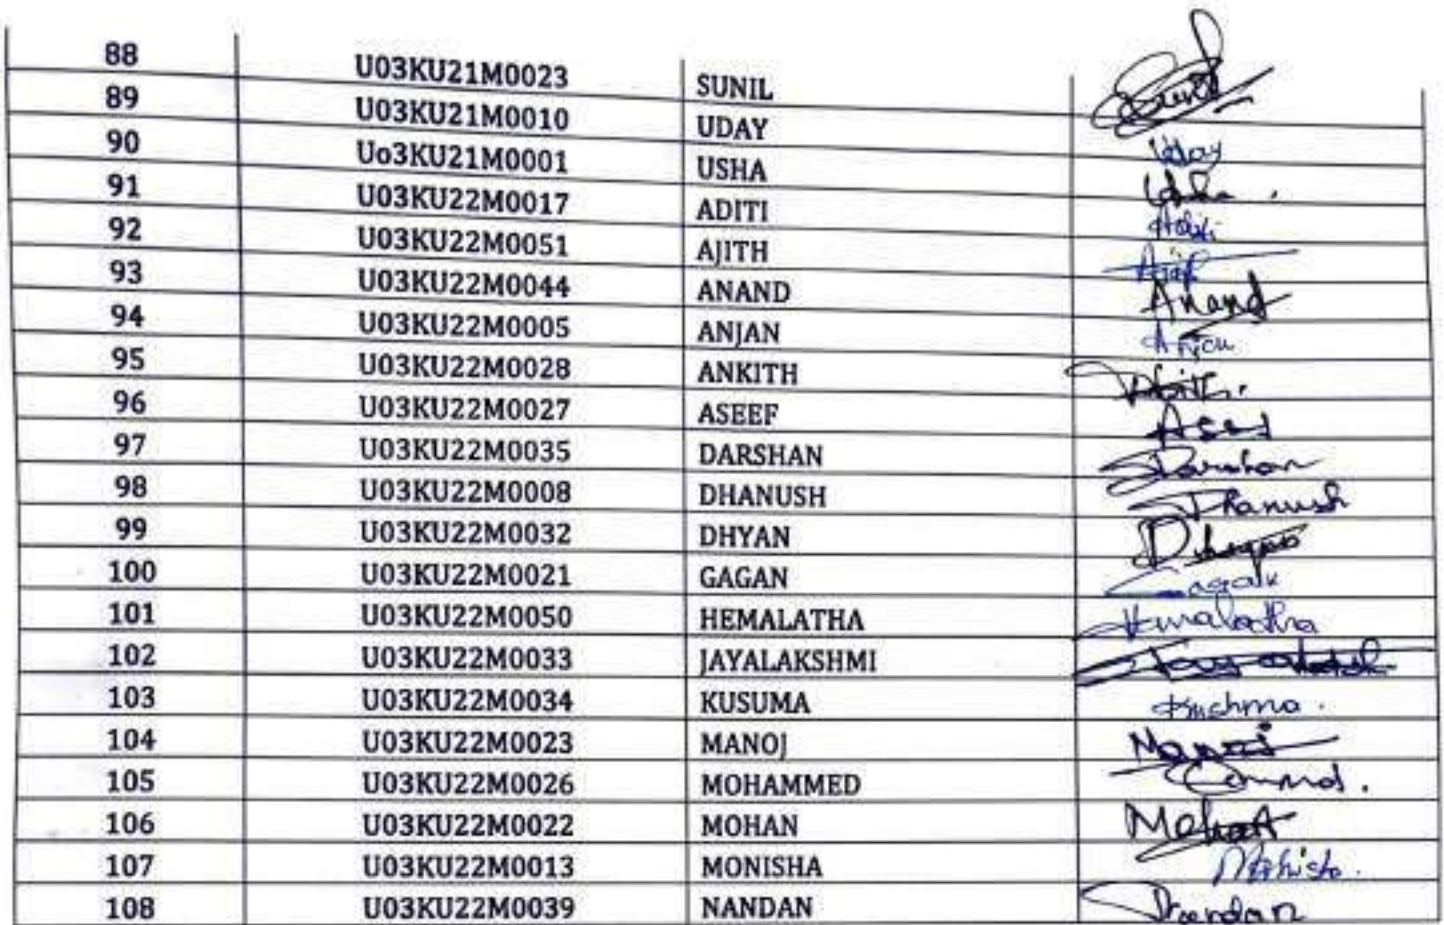 88 U03KU21M0023 SUNIL Sunil
89 U03KU21M0010 UDAY Uday
90 Uo3KU21M0001 USHA Usha .
91 U03KU22M0017 ADITI Aditi
92 U03KU22M0051 AJITH Ajith
93 U03KU22M0044 ANAND Anand
94 U03KU22M0005 ANJAN Anjan
95 U03KU22M0028 ANKITH
96 U03KU22M0027 ASEEF
97 U03KU22M0035 DARSHAN Darshan
98 U03KU22M0008 DHANUSH Dhanush
99 U03KU22M0032 DHYAN
100 U03KU22M0021 GAGAN Gagan
101 U03KU22M0050 HEMALATHA Hemalatha
102 U03KU22M0033 JAYALAKSHMI
103 U03KU22M0034 KUSUMA Kushma .
104 U03KU22M0023 MANOJ Manoj
105 U03KU22M0026 MOHAMMED
106 U03KU22M0022 MOHAN Mohan
107 U03KU22M0013 MONISHA
108 U03KU22M0039 NANDAN Nandan